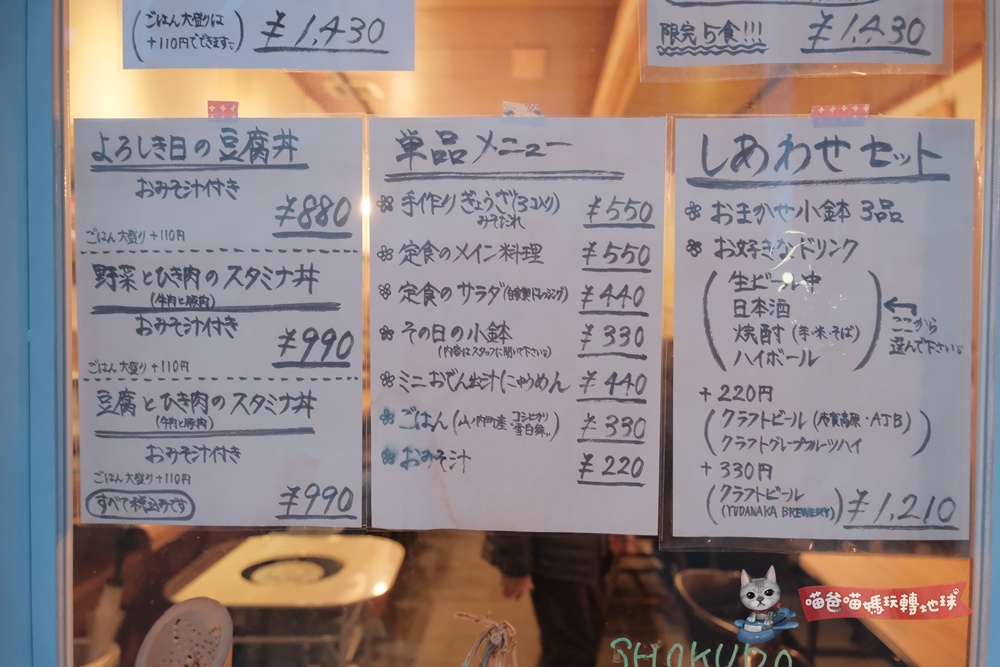 (ごはん大盛りは
+110円でできます。)
¥1,430
限定5食!!!
¥1,430
よろしき日の豆腐丼
おみそ汁付き
¥880
ごはん大盛り+110円
野菜とひき肉のスタミナ丼
(牛肉と豚肉)
おみそ汁付き
¥990
ごはん大盛り+110円
豆腐とひき肉のスタミナ丼
(牛肉と豚肉)
おみそ汁付き
ごはん大盛り+110円
すべて税込みです
¥990
単品メニュー
手作りぎょうざ(3コ入り) ¥550
みそだれ
定食のメイン料理 ¥550
定食のサラダ(自家製ドレッシング) ¥440
その日の小鉢 ¥330
(内容はスタッフに聞いて下さい。)
ミニおでん出汁にゅうめん ¥440
ごはん(山ノ内町産・コシヒカリ・雪白舞) ¥330
おみそ汁 ¥220
しあわせセット
おまかせ小鉢3品
お好きなドリンク
(生ビール中
日本酒
焼酎(芋・米・そば)
ハイボール)
ここから
選んで下さい。
+220円
(クラフトビール(志賀高原・AJB)
クラフトグレープフルーツハイ)
+330円
(クラフトビール
(YUDANAKA BREWERY))
¥1,210
喵爸喵媽玩轉地球
SHOKUDO